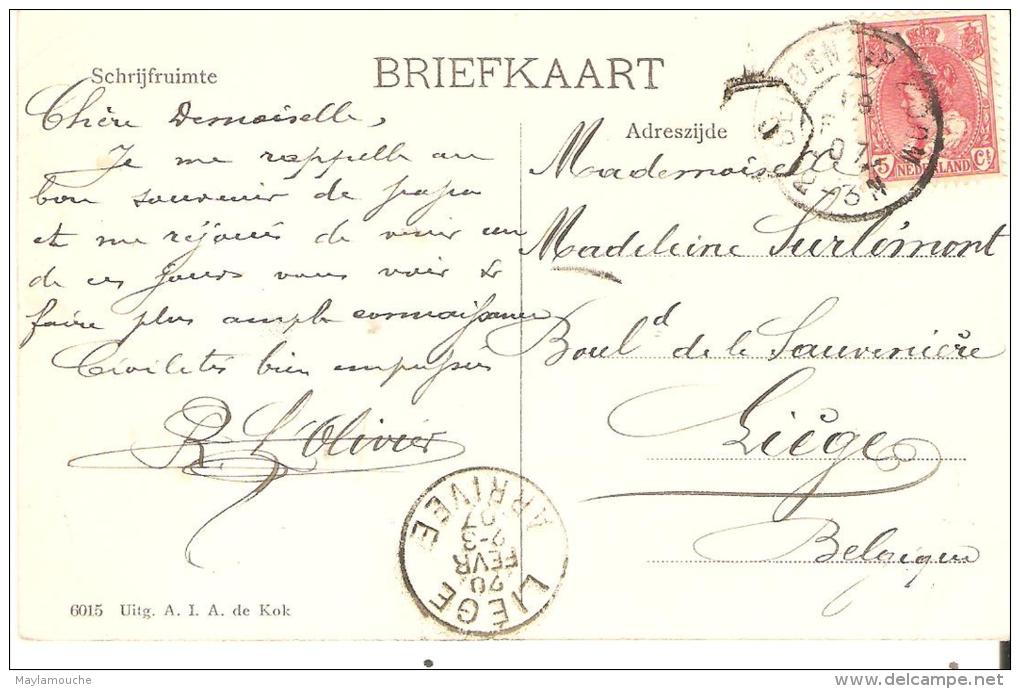 BRIEFKAART
Schrijfruimte
Adreszijde
Chère Demoiselle,
Je me rappelle au
bon souvenir de papa
et me réjouis de venir un
de ces jours vous voir &
faire plus ample connaissance
Civilités bien empressées
R. L'Olivier
Mademoiselle
Madeleine Surlémont
Boul.d de la Sauvenière
Liège
Belgique
5 Ct
NEDERLAND
07
LIÈGE
20
FEVR
2-3
07
ARRIVEE
6015 Uitg. A. I. A. de Kok
Maylamouche
www.delcampe.net